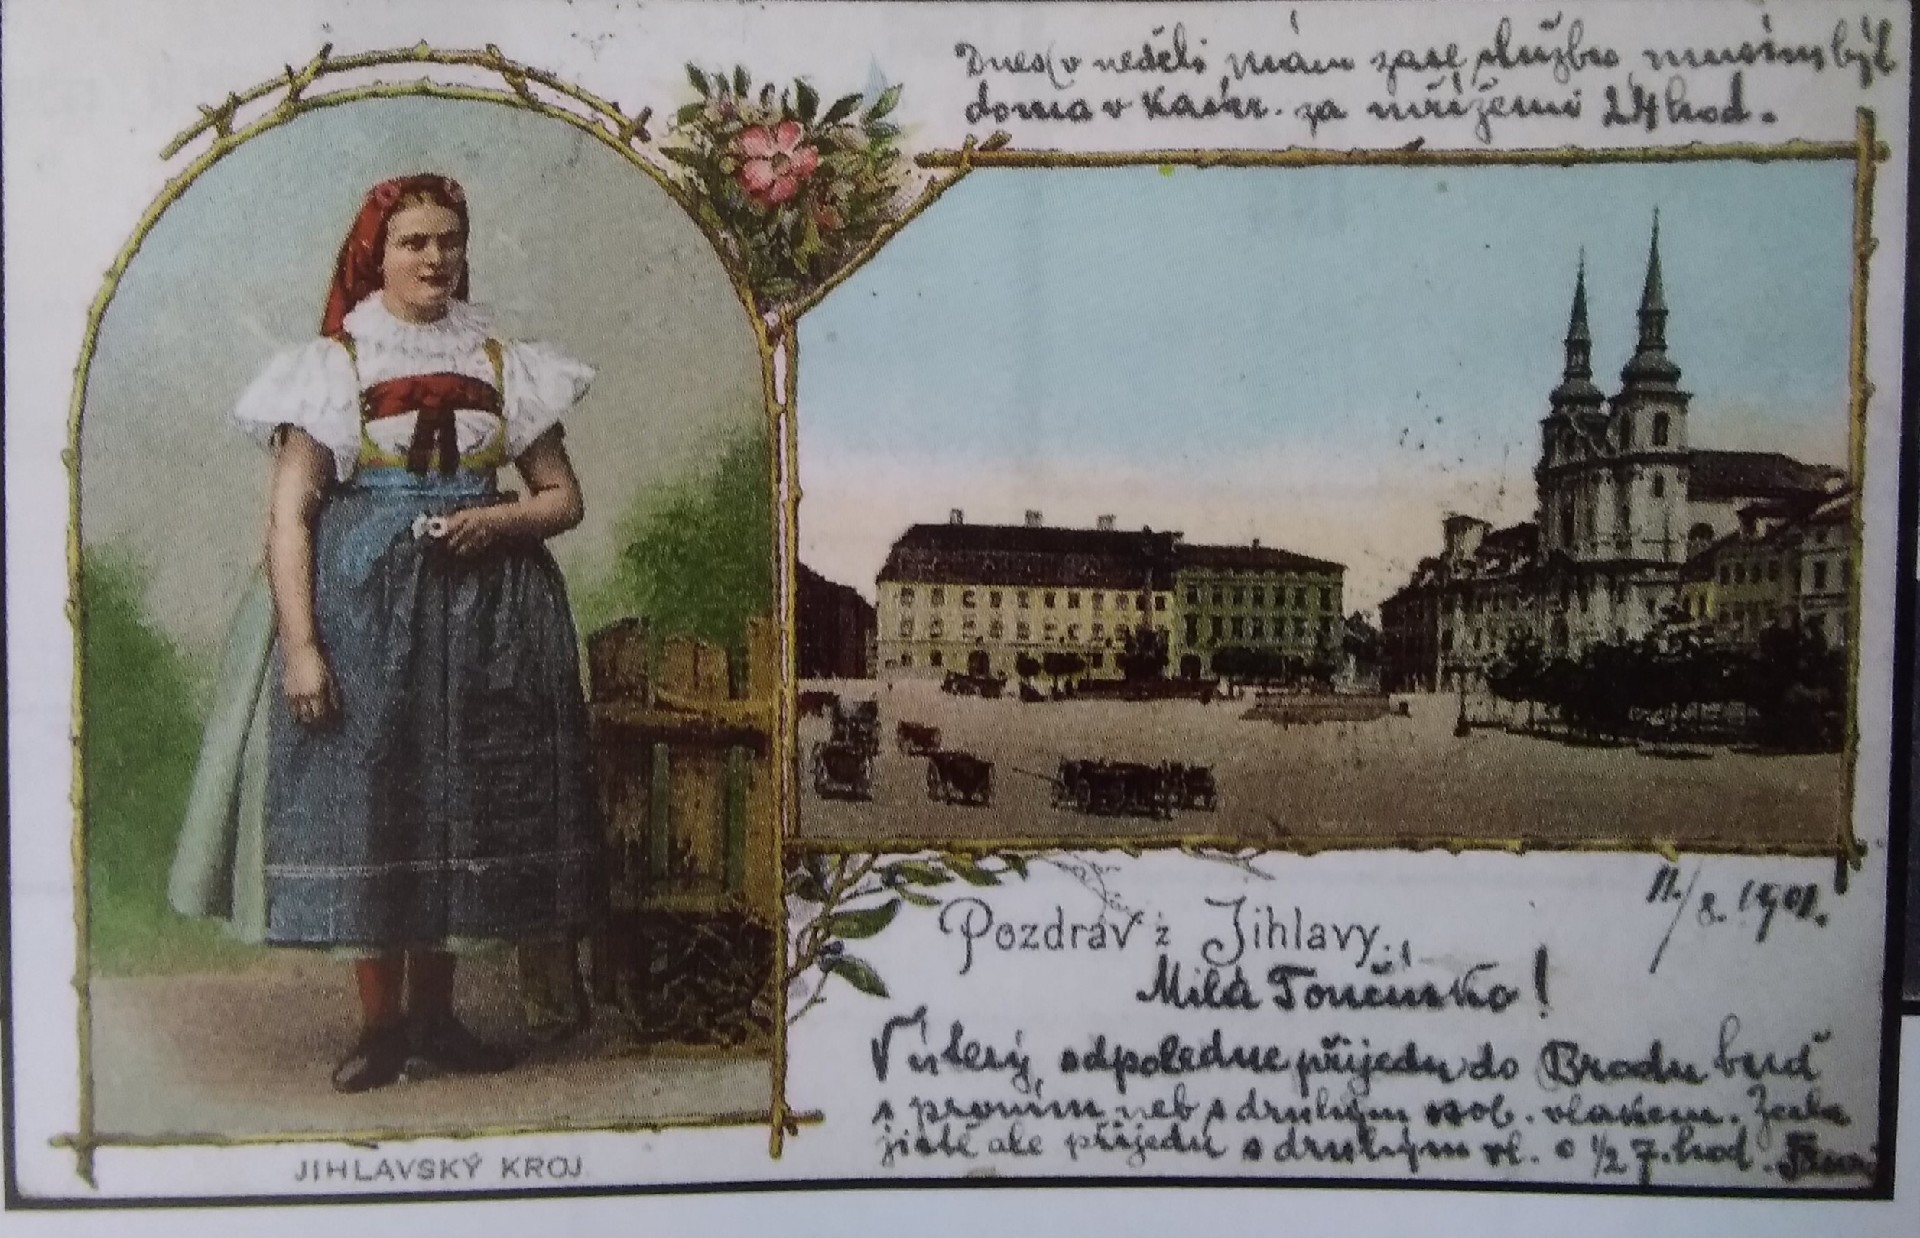 Dnes v neděli mám zase službu, musím být
doma v kasár. za mřížemi 24 hod.
11./8. 1901.
Pozdrav z Jihlavy.
Milá Tončinko!
V úterý odpoledne přijedu do Brodu buď
s prvním neb s druhým osob. vlakem. Zcela
jistě ale přijedu s druhým vl. o ½ 7. hod.
JIHLAVSKÝ KROJ